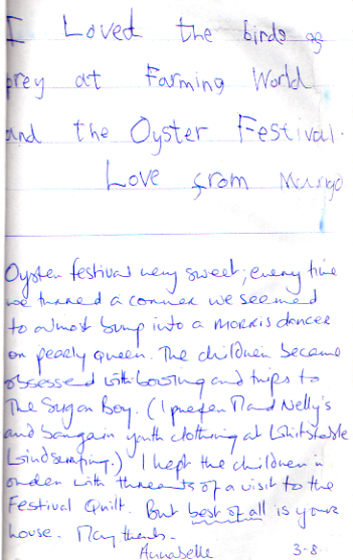 I Loved the birds of
prey at Farming World
and the Oyster Festival.
Love from Margo
Oyster festival very sweet; every time
we turned a corner we seemed
to almost bump into a morris dancer
or pearly queen. The children became
obsessed with bowling and trips to
The Sugar Boy. (I prefer Nelly's
and bargain youth clothing at Whitstable
Windsurfing.) I kept the children in
order with threats of a visit to the
Festival Quilt. But best of all is your
house. Many thanks -
Annabelle 3-8.